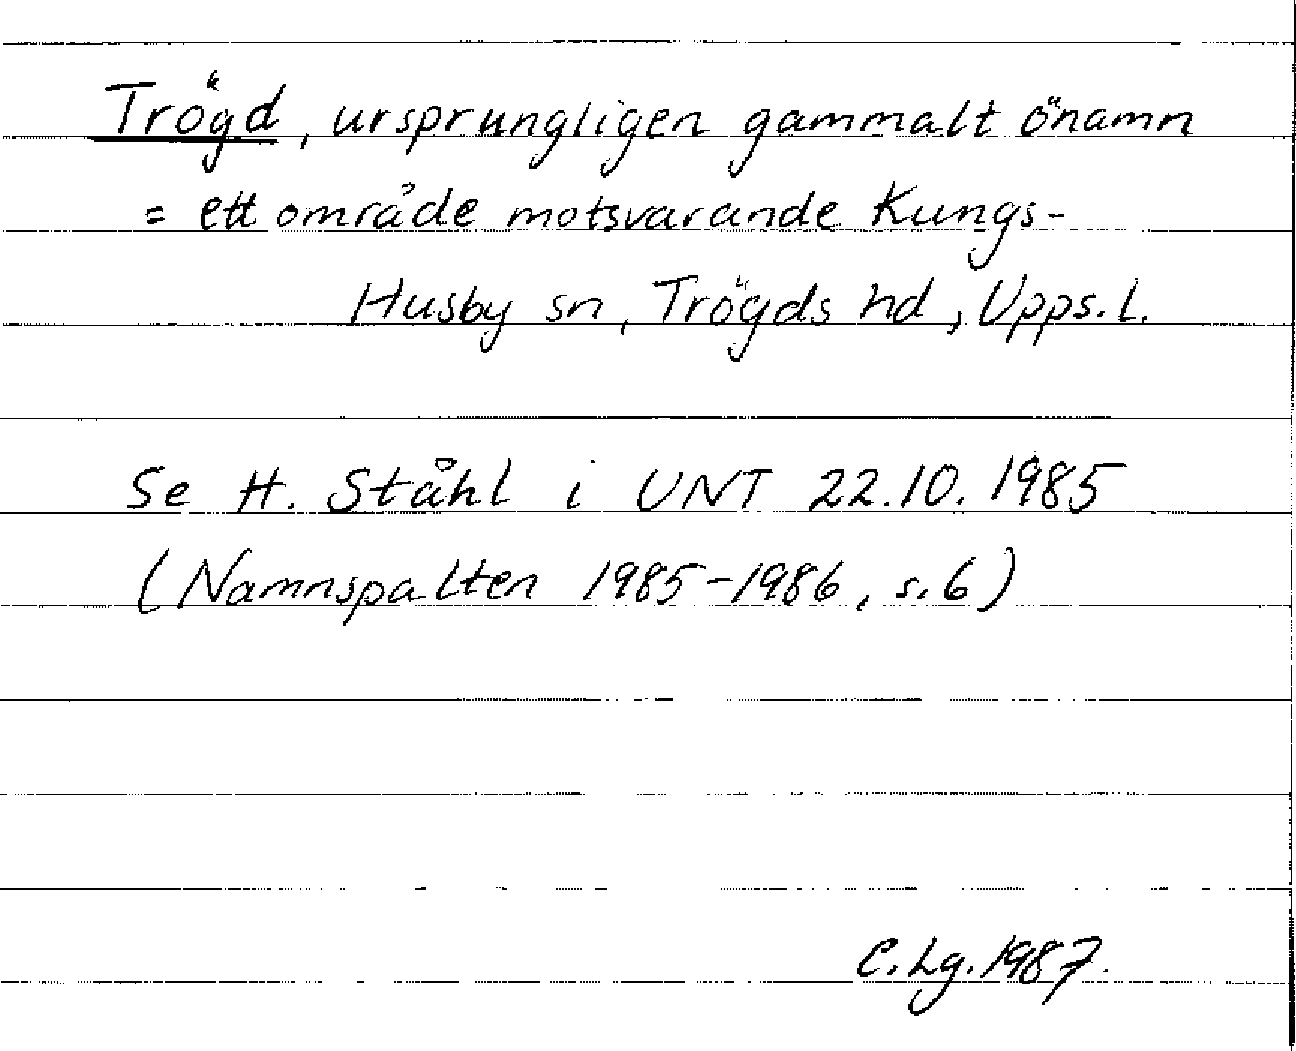 Trögd, ursprungligen gammalt önamn
= ett område motsvarande Kungs-
Husby sn, Trögds hd, Upps.l.
Se H. Ståhl i UNT 22.10.1985
(Namnspalten 1985-1986, s.6)
C.Lg.1987.